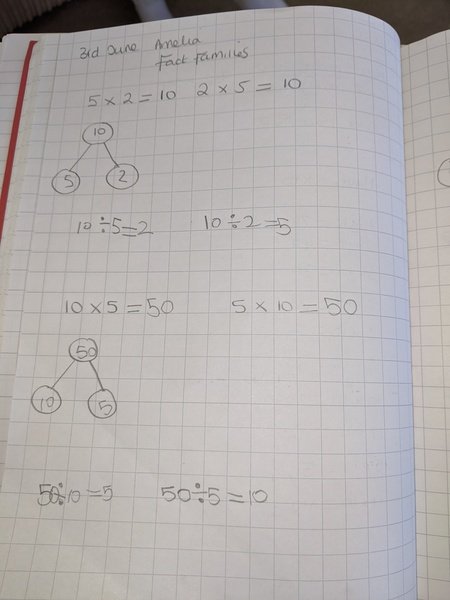 3rd June Amelia
Fact Families
5 × 2 = 10 2 × 5 = 10
10
5 2
10 ÷ 5 = 2 10 ÷ 2 = 5
10 × 5 = 50 5 × 10 = 50
50
10 5
50 ÷ 10 = 5 50 ÷ 5 = 10